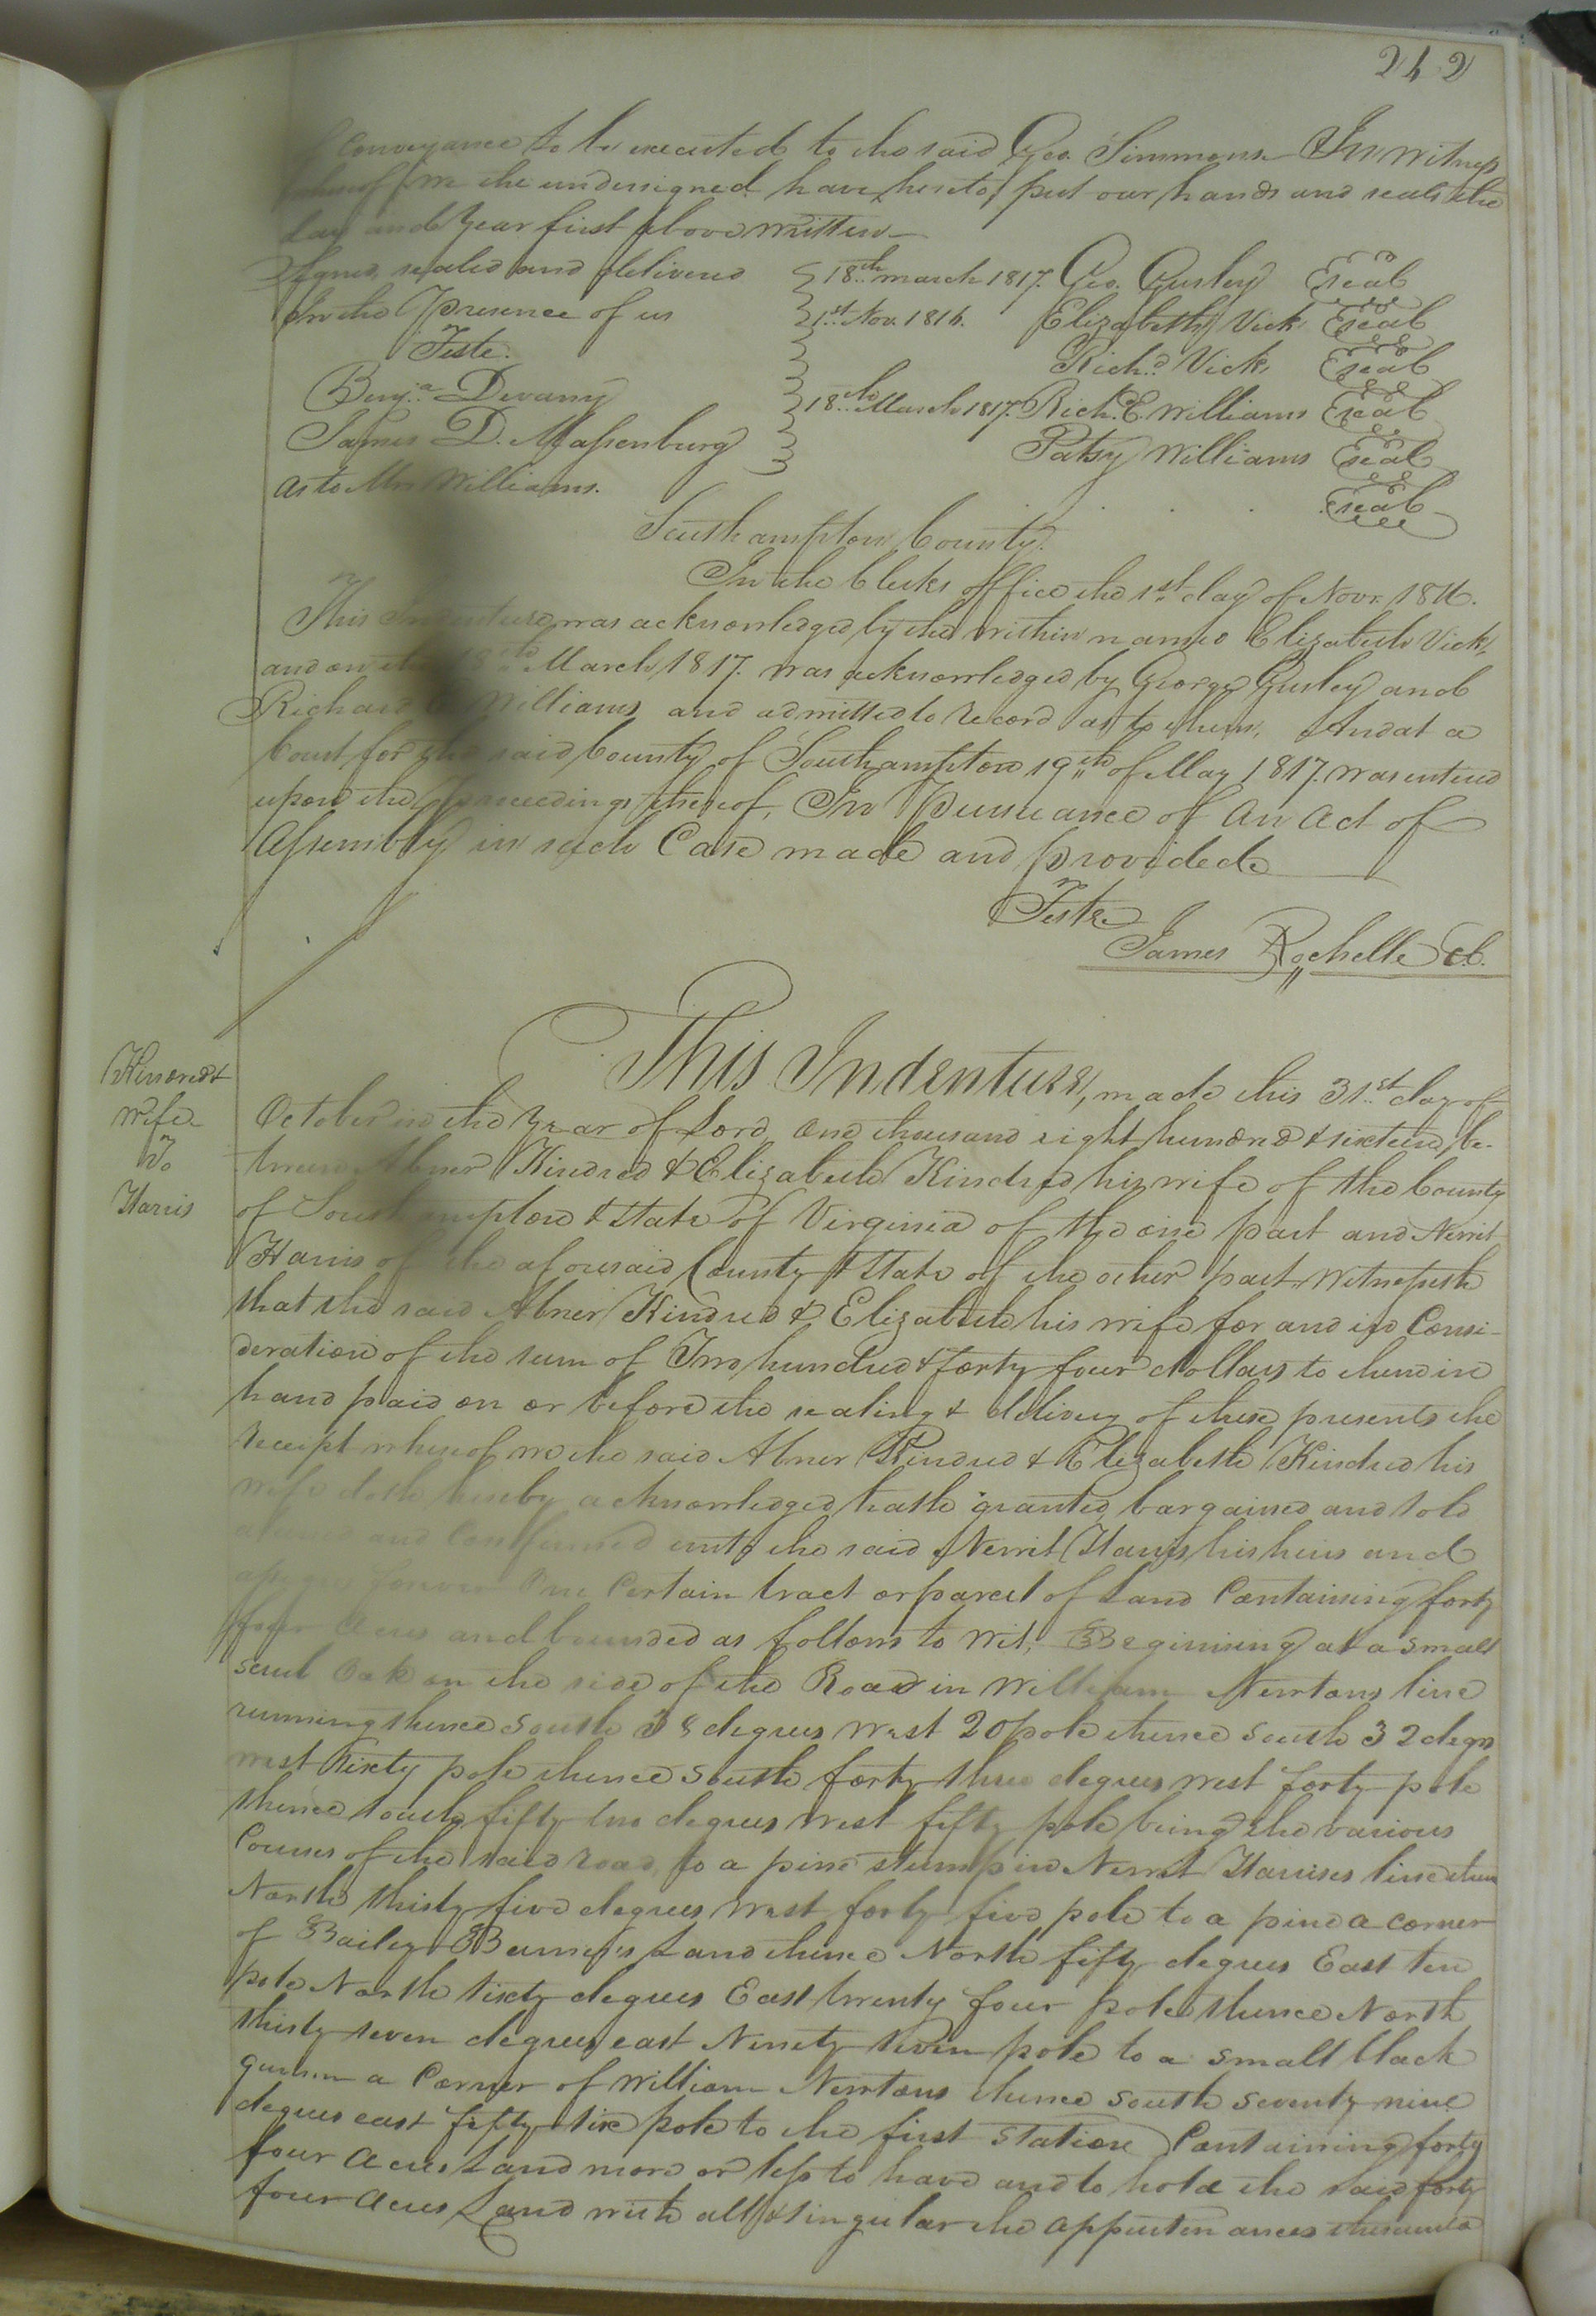 242
Conveyance to be executed to the said Geo. Simmons In Witness
whereof we the undersigned have hereto put our hands and seals the
day and Year first above written
Signed, sealed and delivered } 18th march 1817. Geo. Gurley Seal
In the Presence of us } 1st Nov. 1816. Elizabeth Vick Seal
Teste. Richd. Vick Seal
Benja. Devany } 18th March 1817. Rich. E. Williams Seal
James D. Massenburg } Patsy Williams Seal
as to Mrs Williams. Seal
Southampton County.
In the Clerks office the 1st day of Novr. 1816.
This Indenture was acknowledged by the within named Elizabeth Vick,
and on the 18th March 1817. was acknowledged by George Gurley and
Richard Williams and admitted to record as to them, And at a
Court for the said County of Southampton 19th of May 1817. was entered
upon the proceedings thereof, In Pursuance of an act of
Assembly in such Case made and provided
Teste
James Rochelle Cl.
Kindred &
wife
To
Harris
This Indenture, made this 31st day of
October in the Year of Lord one thousand eight hundred & sixteen, be-
tween Abner Kindred & Elizabeth Kindred his wife of the County
of Southampton & State of Virginia of the one part and Newit
Harris of the aforesaid County & State of the other part Witnesseth
that the said Abner Kindred & Elizabeth his wife for and in Consi-
deration of the sum of Two hundred & forty four dollars to them in
hand paid on or before the sealing & delivery of these presents the
receipt whereof we the said Abner Kindred & Elizabeth Kindred his
wife doth hereby acknowledged hath granted, bargained and sold
and Confirmed unto the said Newit Harris his heirs and
assigns forever One Certain tract or parcel of Land Containing forty
four acres and bounded as follows to wit; Beginning at a small
scrub Oak on the side of the Road in William Newtons line
running thence south 38 degrees West 20 pole thence south 32 degrs
west Sixty pole thence south forty three degrees west forty pole
thence south fifty two degrees west fifty pole being the various
Courses of the said road, to a pine stump in Newit Harrises line then
North thirty five degrees West forty five pole to a pine a corner
of Bailey Barnes's Land thence North fifty degrees East ten
pole North sixty degrees East twenty four pole thence North
thirty seven degrees east Ninety seven pole to a small black
gum in a Corner of William Newtons thence south seventy nine
degrees east fifty six pole to the first station Containing forty
four acres Land more or less to have and to hold the said forty
four acres Land with all & singular the appurtenances thereunto